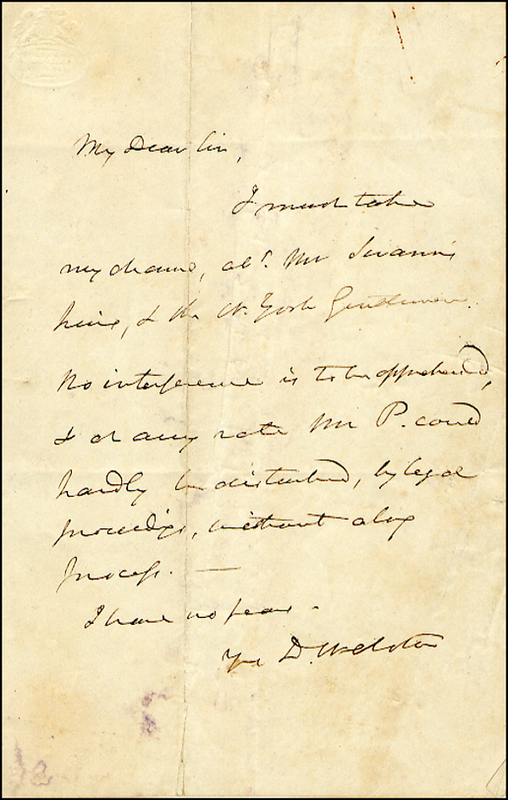 My Dear Sir,
I must take
my chance, abt. Mr Swann's
heirs, & the N. York Gentlemen.
No interference is to be apprehended,
& at any rate Mr P. could
hardly be disturbed, by legal
proceedings, without a long
process. —
I have no fear.
Yrs D. Webster